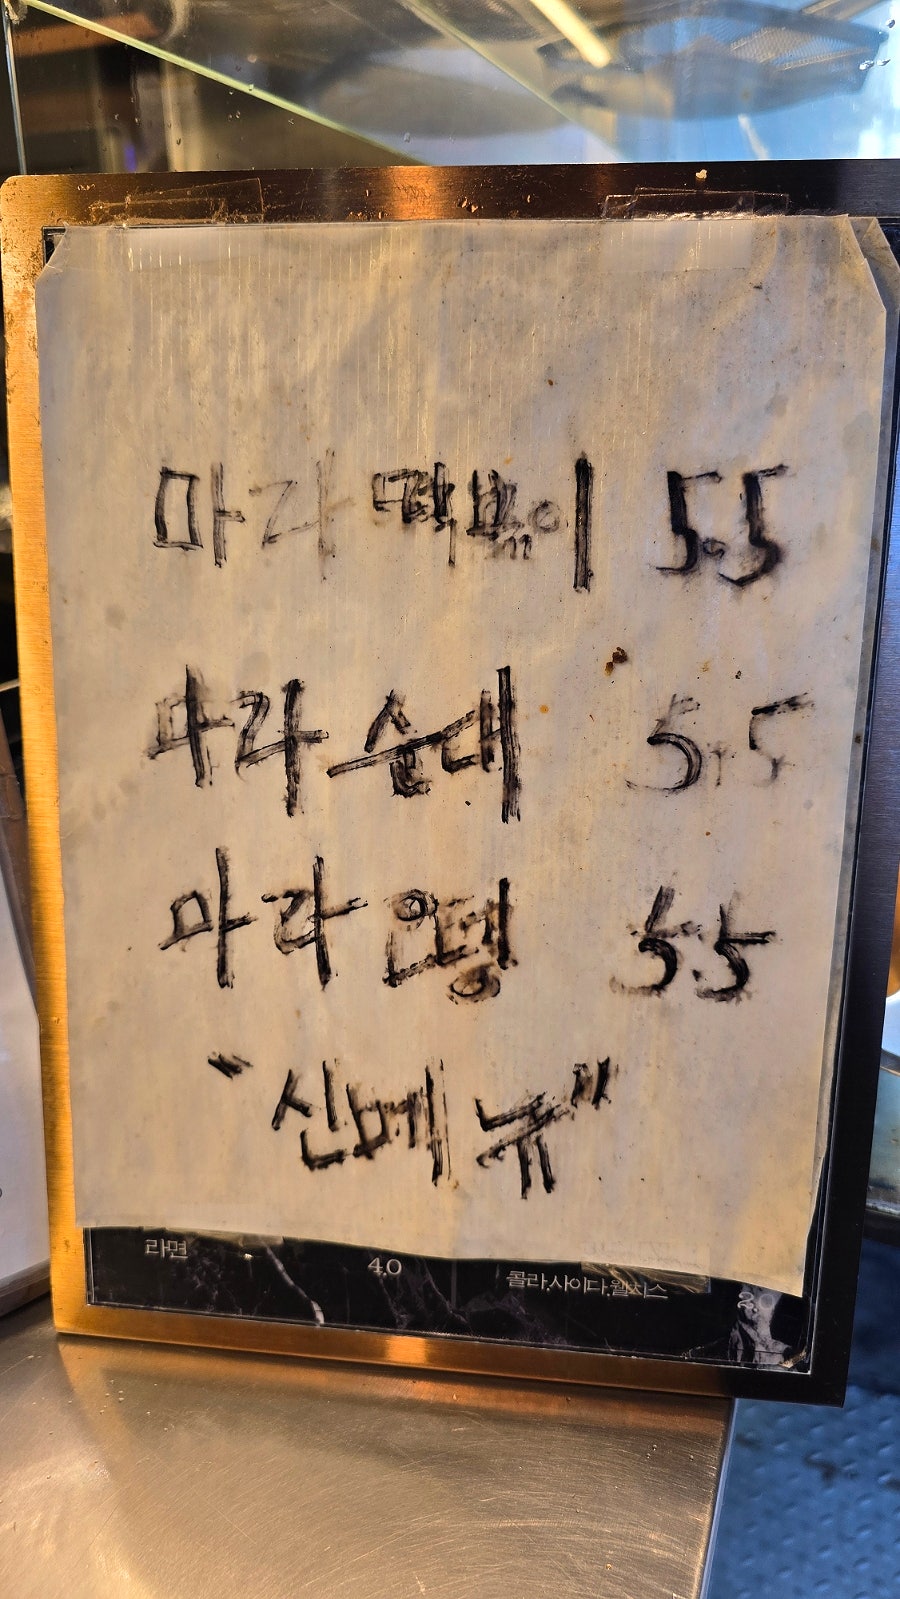 마라 떡볶이 5.5
마라 순대 5.5
마라 오뎅 5.5
"신메뉴"
라면 4.0 콜라.사이다.웰치스